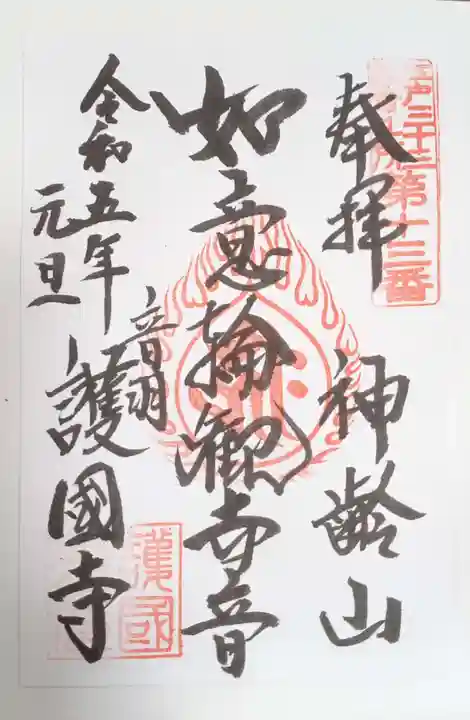 江戸三十三
第十三番
奉拝
神齢山
如意輪観世音
令和五年
元旦
音羽
護國寺